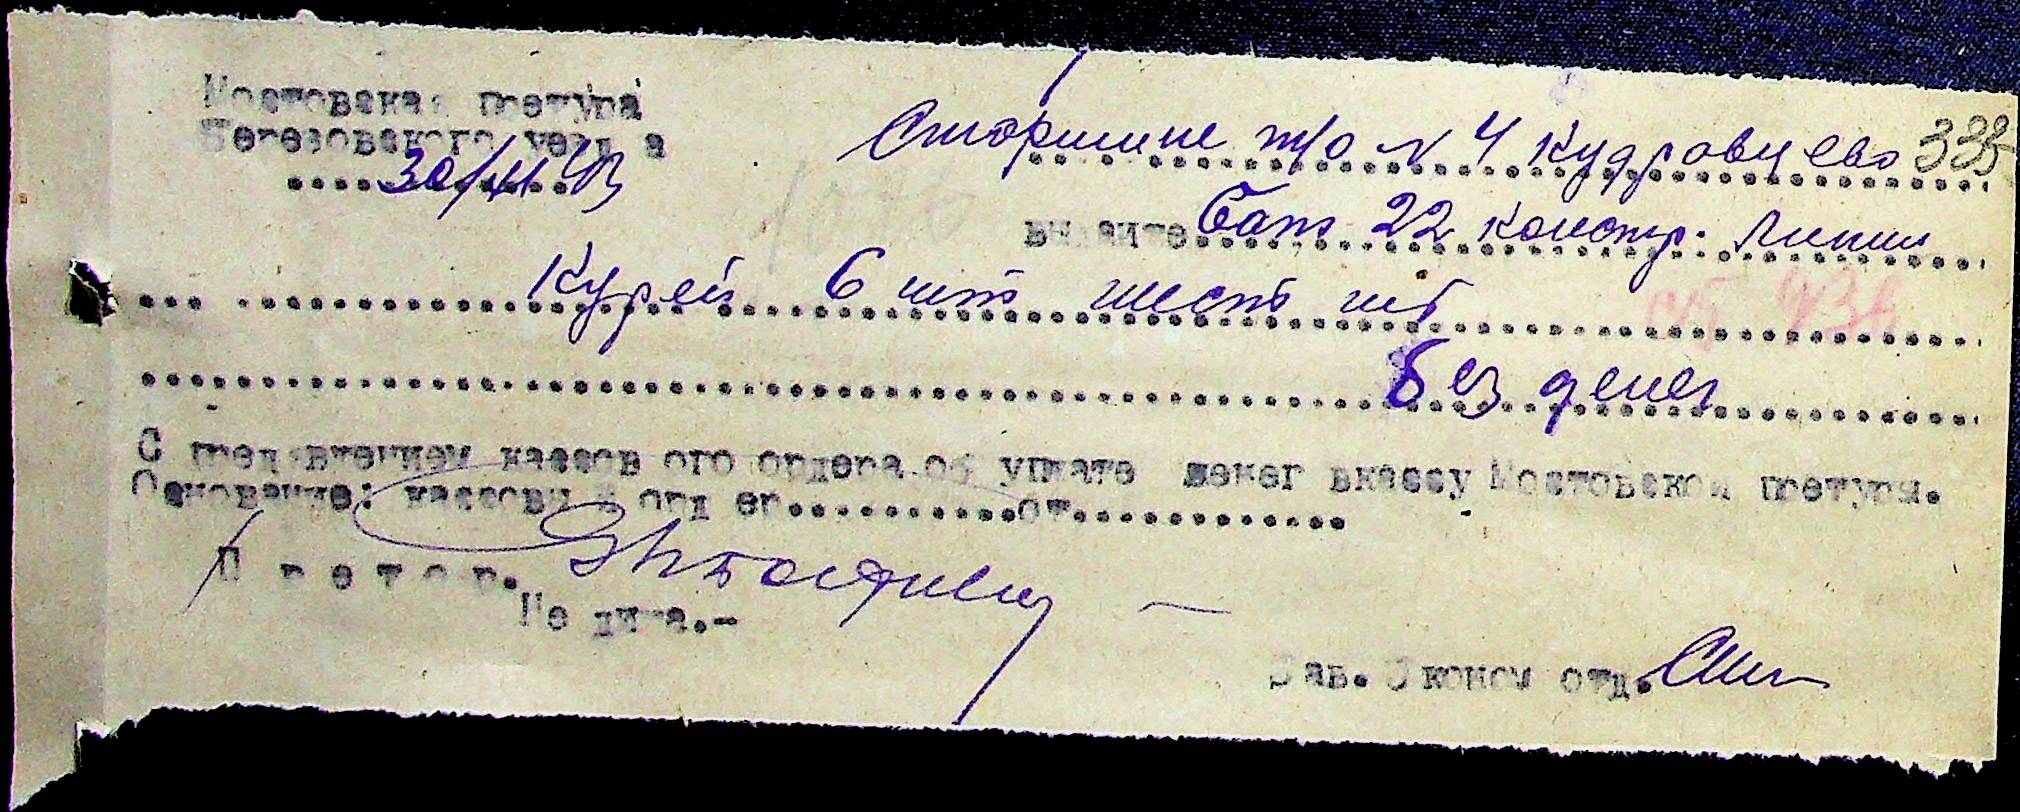 Мостовская претура
Березовского уезда
30/XI 43
Старшине т/о N 4 Кудрявцево 335
выдайте Бат 22 констр. Линии
Курей 6 шт шесть шт
Без денег
С пред'явлением кассов ого ордера об уплате денег вкассу Мостовской претуры.
Основание: кассовый орд ер...........от.............
П р е т о р.
Не дига.-
Зав. Эконом отд.